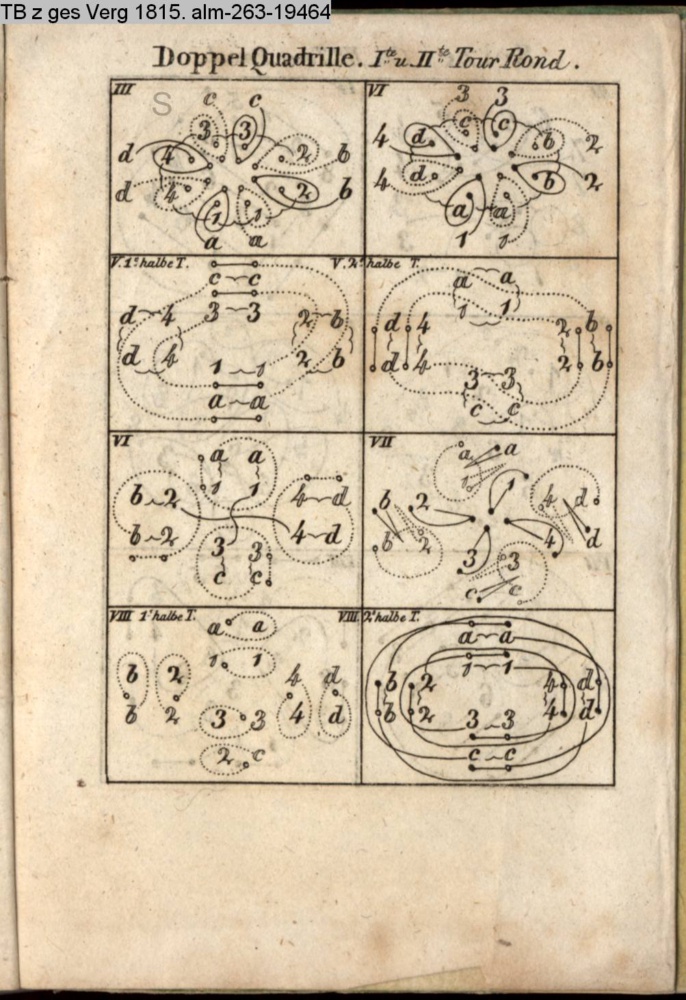 TB z ges Verg 1815. alm-263-19464
Doppel Quadrille. I.te u. II.te Tour Rond.
III
S
c c
3 3
d 4 2 b
d 4 2 b
1 1
a a
VI
3 3
c c
4 d b 2
4 d b 2
a a
1 1
V. 1.e halbe T.
c c
d 4 3 3 2 b
d 4 2 b
1 1
a a
V. 2.e halbe T.
a a
d 4 1 1 2 b
d 4 2 b
3 3
c c
VI
a a
b 2 1 1 4 d
b 2 3 3 4 d
c c
VII
a a
b 2 1 1 4 d
b 2 3 3 4 d
c c
VIII 1.e halbe T.
a a
1 1
b 2 4 d
b 2 3 3 4 d
2 c
VIII. 2.e halbe T.
a a
1 1
b 2 4 d
b 2 4 d
3 3
c c